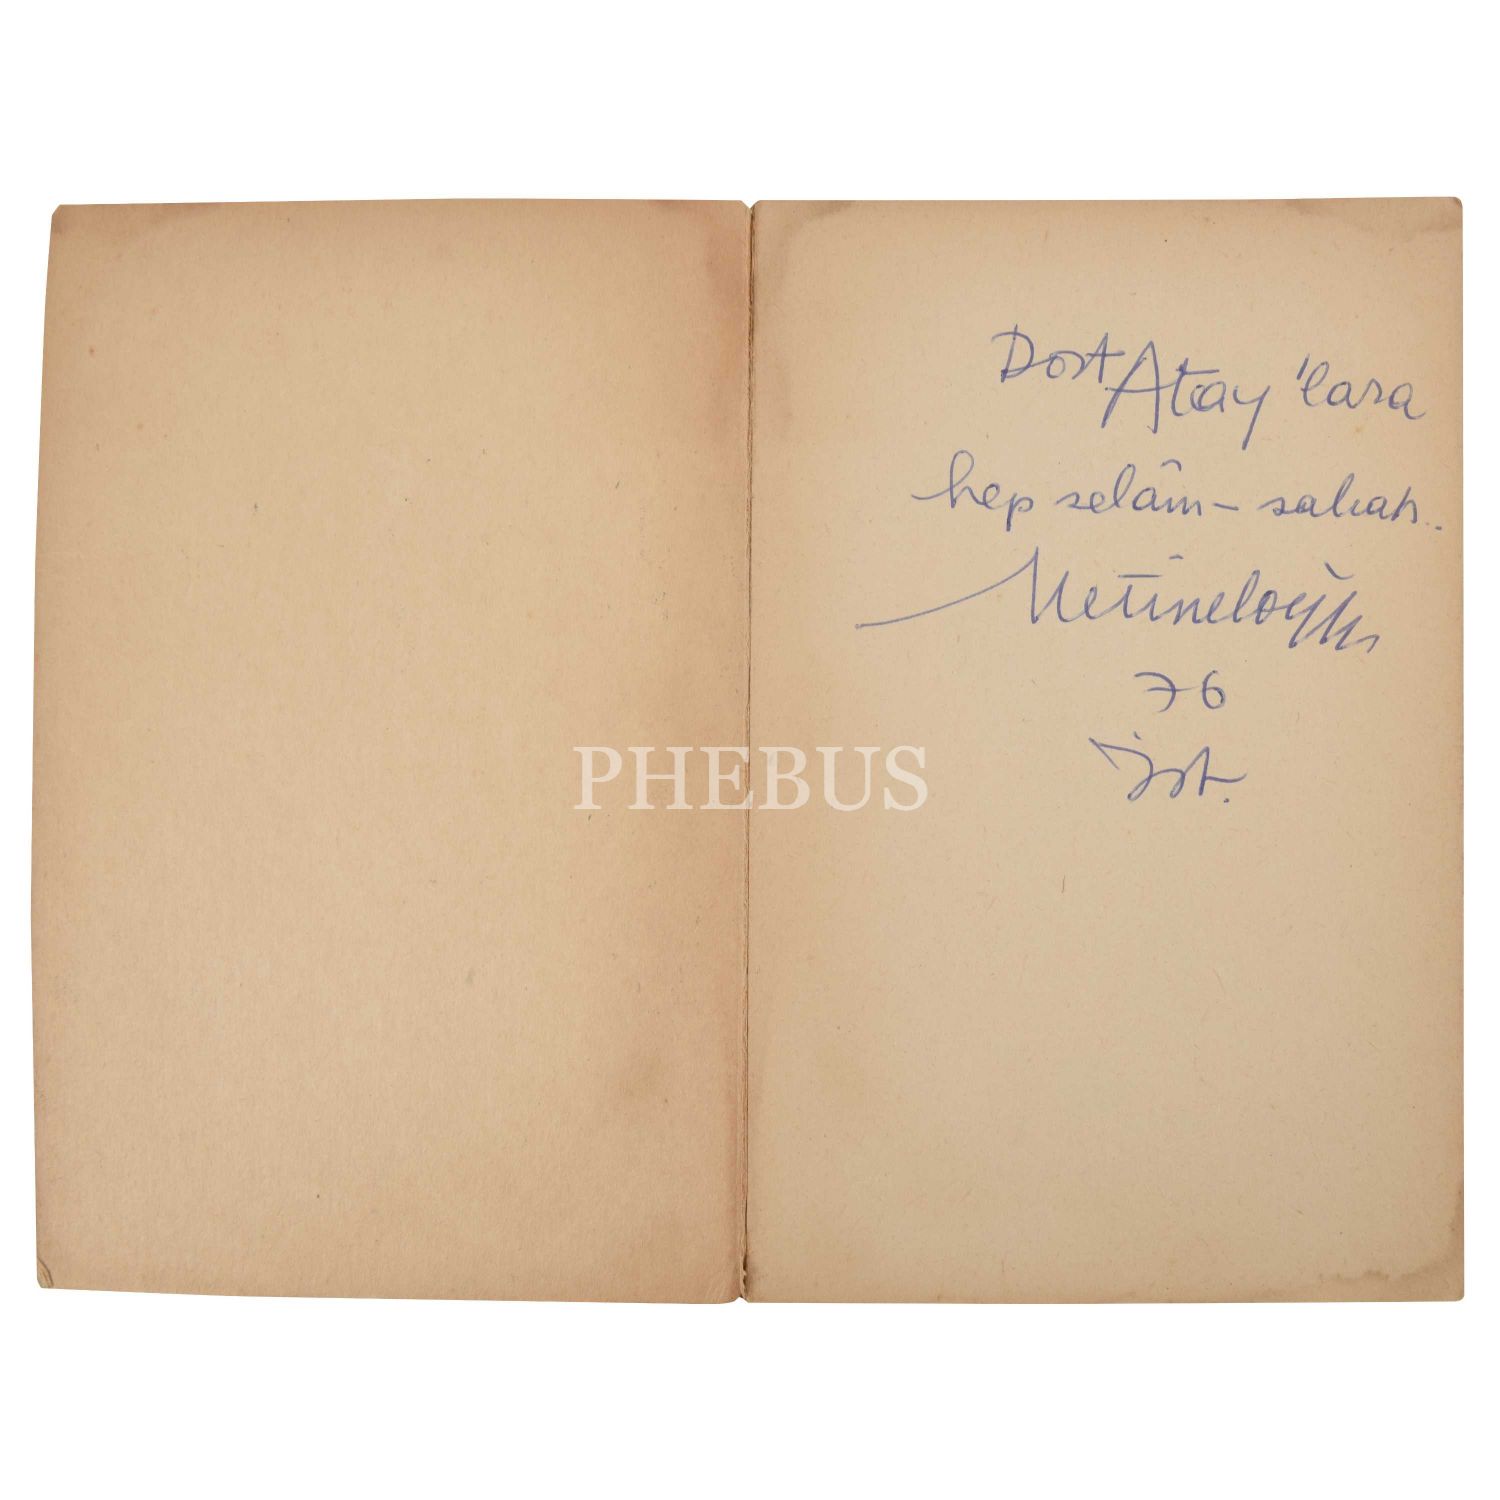 Dost Atay'lara
hep selâm – sabah.
Metin Eloğlu
76
İst.
PHEBUS